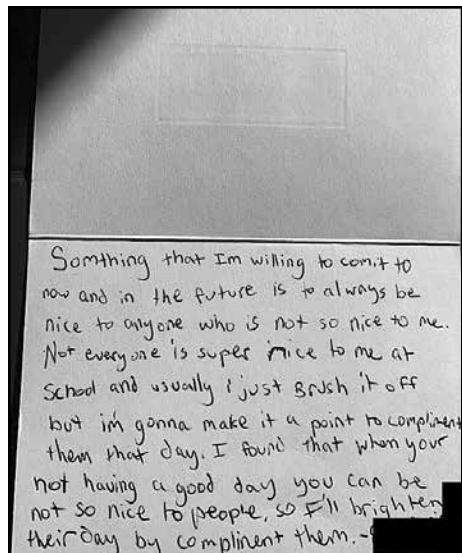 Somthing that Im willing to comit to
now and in the future is to always be
nice to anyone who is not so nice to me.
Not everyone is super nice to me at
School and usually i just Brush it off
but im gonna make it a point to compliment
them that day. I found that when your
not having a good day you can be
not so nice to people, so I'll brighten
their day by complinent them. -